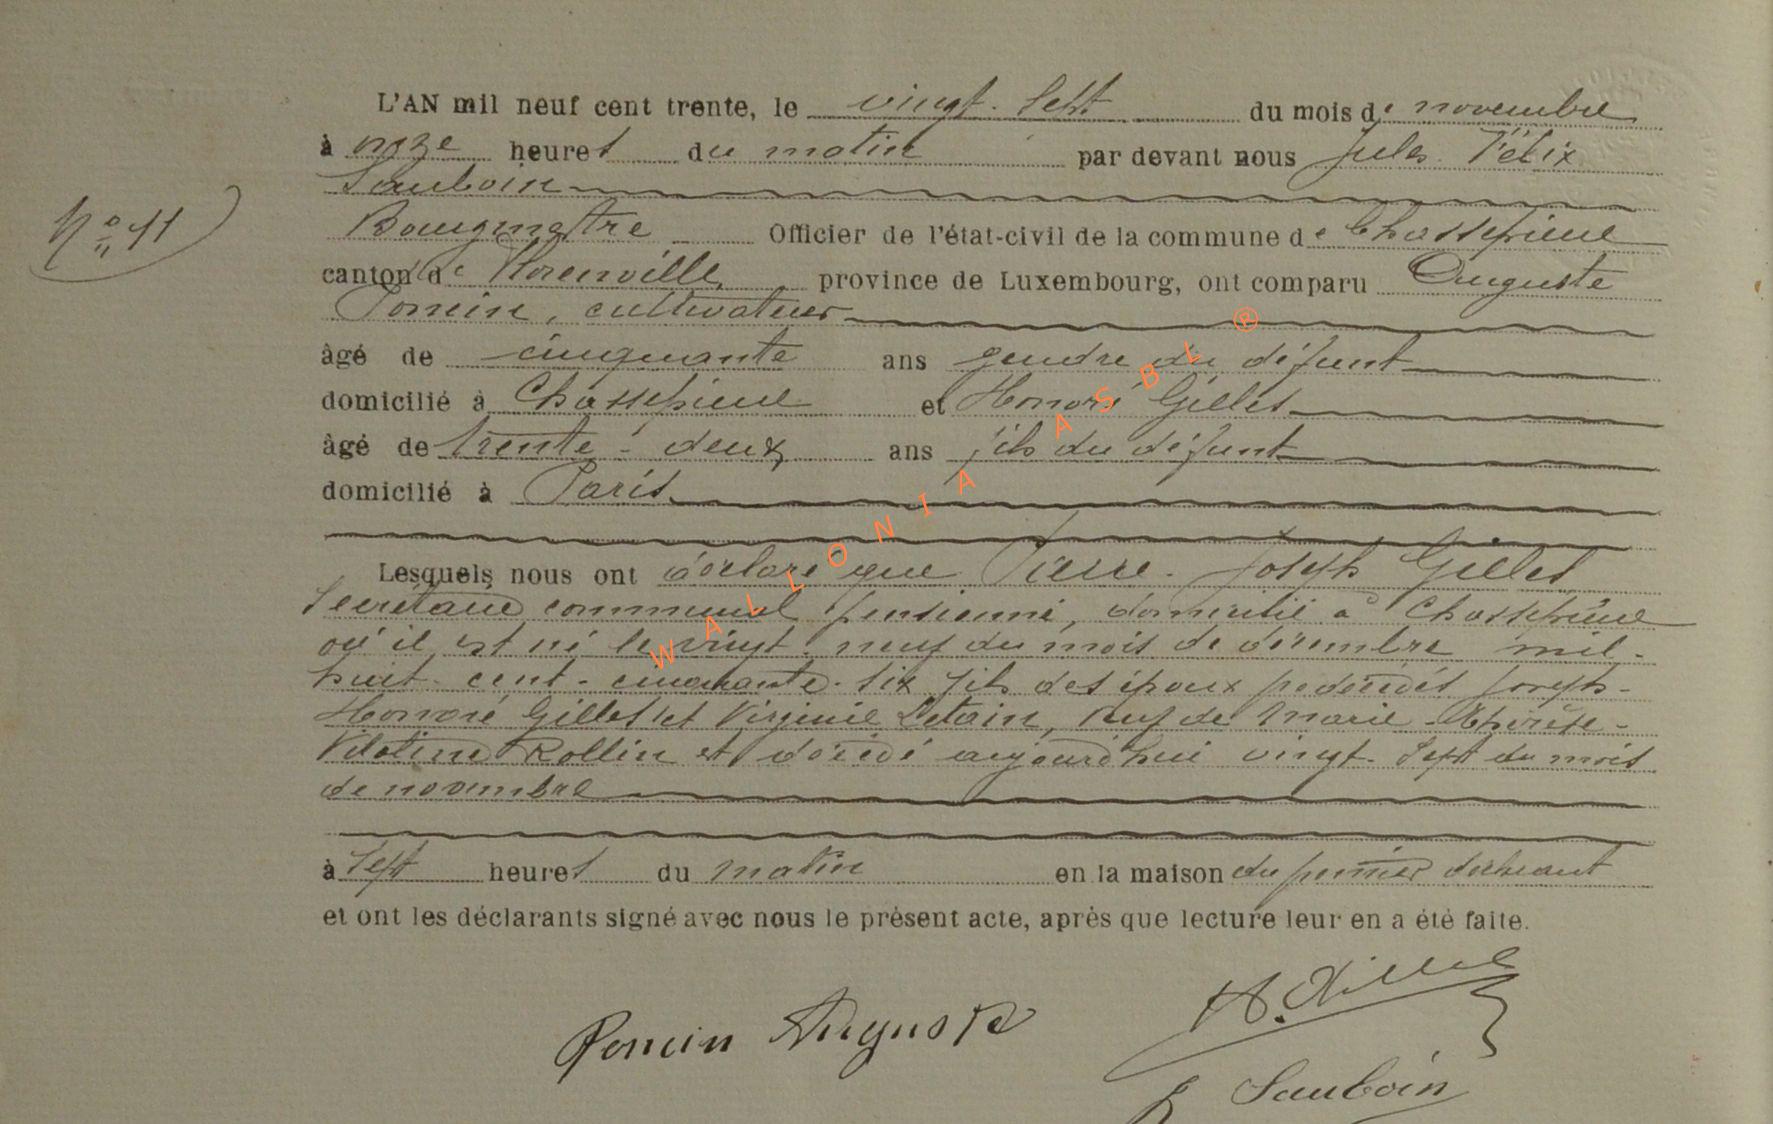 L'AN mil neuf cent trente, le vingt-sept du mois de novembre
à onze heures du matin par devant nous Jules Félix
Sauboin
N° 11
Bourgmestre Officier de l'état-civil de la commune de Chassepierre
canton de Florenville province de Luxembourg, ont comparu Auguste
Poncin, cultivateur
âgé de cinquante ans gendre du défunt
domicilié à Chassepierre et Honoré Gillet
âgé de trente-deux ans fils du défunt
domicilié à Paris
Lesquels nous ont déclaré que Pierre-Joseph Gillet
secrétaire communal pensionné, domicilié à Chassepierre
où il est né le vingt-neuf du mois de décembre mil-
huit-cent-cinquante-six fils des époux prédécédés Joseph-
Honoré Gillet et Virginie Letain, veuf de Marie-Thérèse-
Rollin est décédé aujourd'hui vingt-sept du mois
de novembre
à sept heures du matin en la maison du premier déclarant
et ont les déclarants signé avec nous le présent acte, après que lecture leur en a été faite.
Poncin Auguste
H. Gillet
J Sauboin
WALLONIA ASBL ®